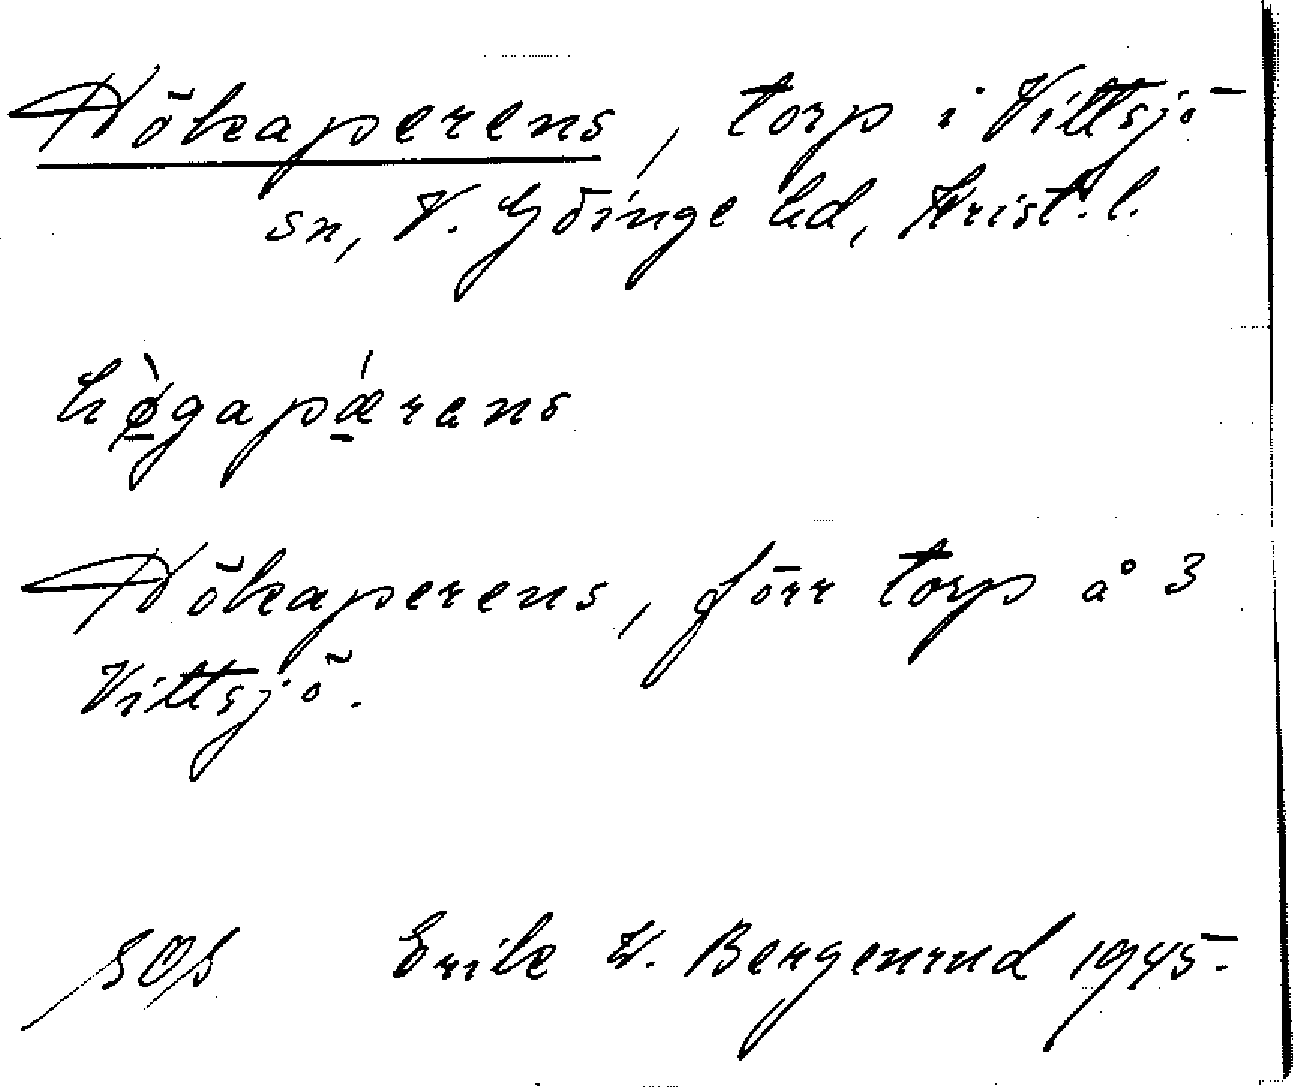 Hökaperens, torp i Vittsjö
sn, V. Göinge hd, Krist. l.
hø̀gapǽrans
Hökaperens, förr torp å 3
Vittsjö.
SOS Erik W. Bergenrud 1945.